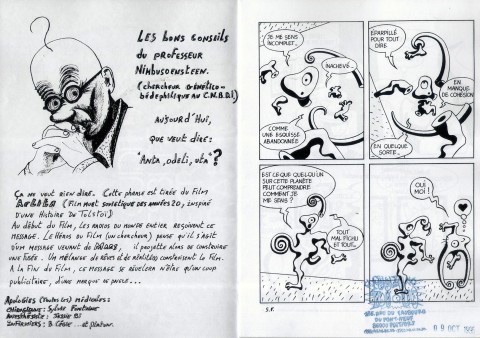 LES BONS CONSEILS
DU PROFESSEUR
NIMBUSOENSTEEN.
(CHERCHEUR GÉNÉTICO-
BÉDÉPHILIQUE AU C.N.B.D.I)
AUJOURD'HUI,
QUE VEUT DIRE:
"ANTA, ODELI, UTA"?
ÇA NE VEUT RIEN DIRE. Cette phrase est tirée du film
Aelita (Film muet soviétique des années 20, inspiré
d'une histoire de Tolstoï)
Au début du film, les radios du monde entier reçoivent ce
message. Le héros du film (un chercheur) pense qu'il s'agit
d'un message venant de MARS, il projette alors de construire
une fusée. Un mélange de rêves et de réalités constituent le film.
A la fin du film, ce message se révélera n'être qu'un coup
publicitaire, d'une marque de pneus...
Apologies médicales:
Chirurgienne: Sylvie Fontaine
Anesthésiste:
Infirmiers: B. César ... et Platon.
JE ME SENS
INCOMPLET...
INACHEVÉ...
COMME
UNE ESQUISSE
ABANDONNÉE
ÉPARPILLÉ
POUR TOUT
DIRE
EN
MANQUE
DE COHÉSION
EN QUELQUE
SORTE...
EST-CE QUE QUELQU'UN
SUR CETTE PLANÈTE
PEUT COMPRENDRE
COMMENT JE
ME SENS ?
TOUT
MAL FICHU
ET TOUT...
OUI
MOI !
S.F.
09 OCT